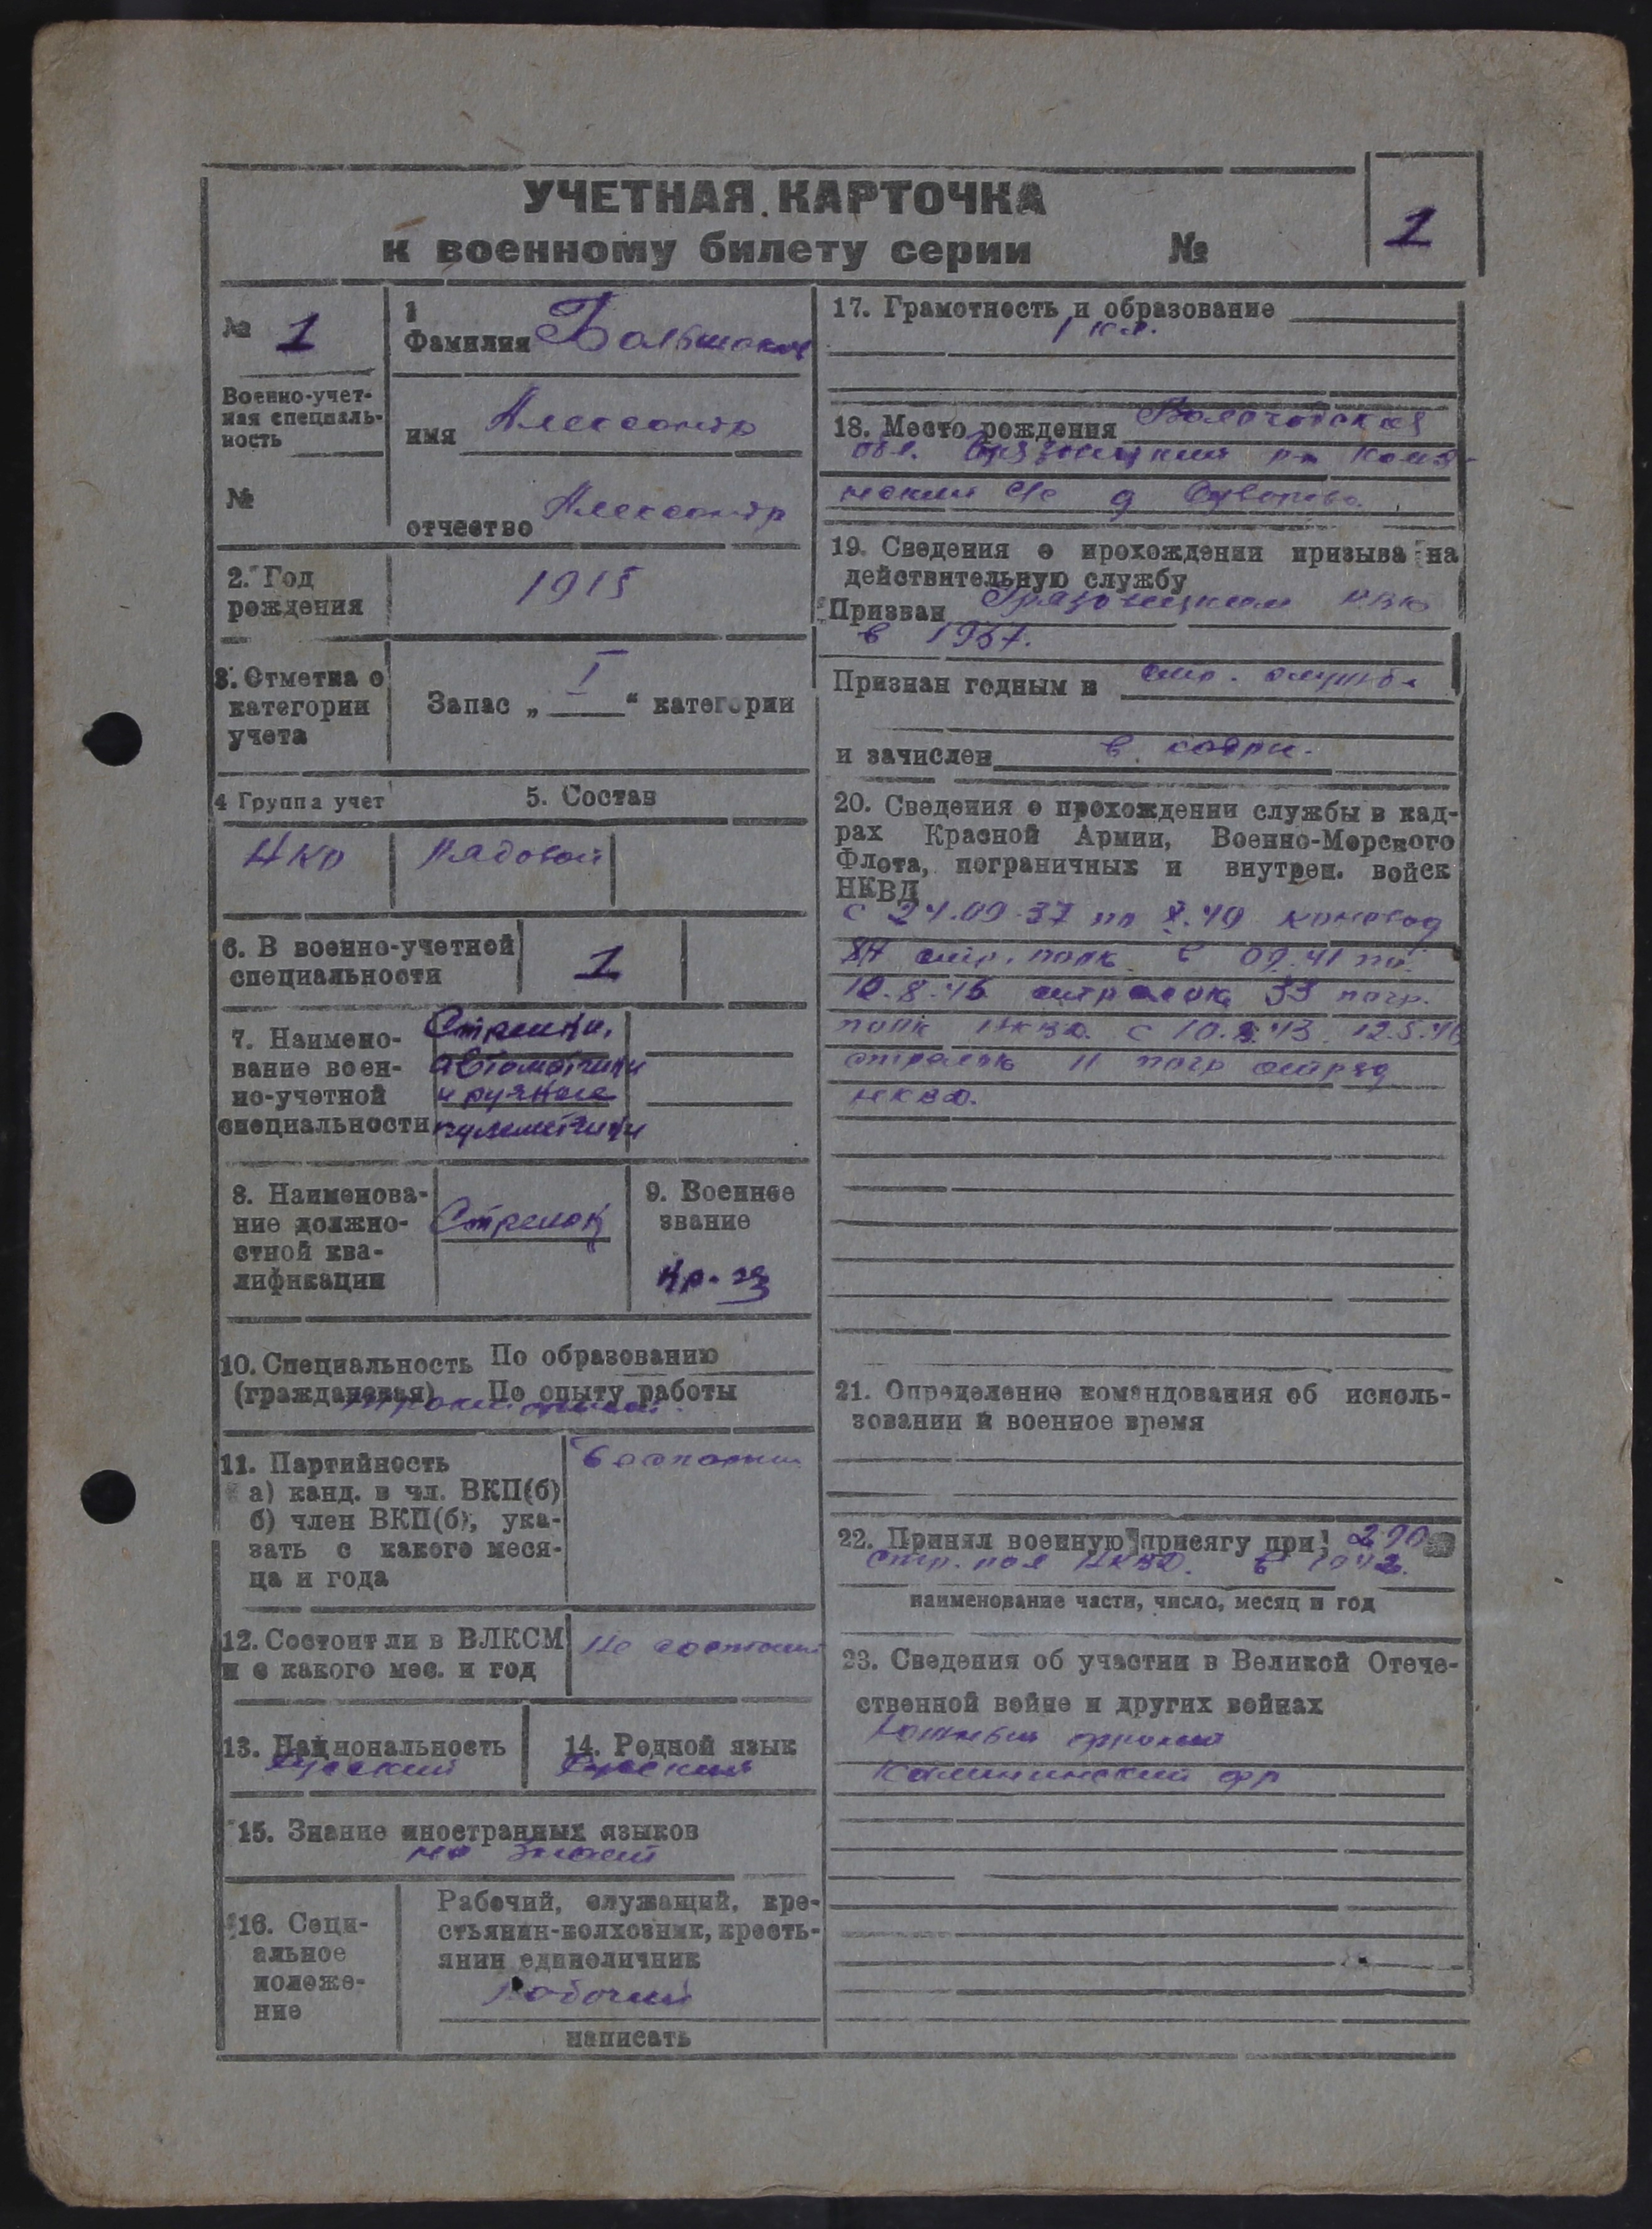 УЧЕТНАЯ КАРТОЧКА
к военному билету серии №
1
№ 1
Военно-учет-
ная специаль-
ность
№
1
Фамилия Большаков
имя Александр
отчество Александр
2. Год
рождения
1915
3. Отметка о
категории
учета
Запас „ I “ категории
4 Группа учет
5. Состав
НКО
Рядовой
6. В военно-учетной
специальности
1
7. Наимено-
вание воен-
но-учетной
специальности
Стрелки,
автоматчики
и ручные
пулеметчики
8. Наименова-
ние должно-
стной ква-
лификации
Стрелок
9. Военное
звание
Кр-ец
10. Специальность По образованию
(гражданская) По опыту работы
11. Партийность
а) канд. в чл. ВКП(б)
б) член ВКП(б), ука-
зать с какого меся-
ца и года
12. Состоит ли в ВЛКСМ
и с какого мес. и год
Не состоит
13. Национальность
Русский
14. Родной язык
Русский
15. Знание иностранных языков
не знает
16. Соци-
альное
положе-
ние
Рабочий, служащий, кре-
стьянин-колхозник, кресть-
янин единоличник
Рабочий
написать
17. Грамотность и образование
1 кл.
18. Место рождения Вологодская
обл. Грязовецкий р-н
с/с д
19. Сведения о прохождении призыва на
действительную службу
Призван Грязовецким РВК
в 1937.
Признан годным в стр. службе
и зачислен в кадры.
20. Сведения о прохождении службы в кад-
рах Красной Армии, Военно-Морского
Флота, пограничных и внутрен. войск
НКВД
с 24.09.37 по X.40 коновод
стр. полк с 09.41 по
10.8.43 стрелок 33 погр.
полк НКВД с 10.8.43. 12.5.46
стрелок 11 погр отряд
НКВД.
21. Определение командования об исполь-
зовании в военное время
22. Принял военную присягу при 290
стр. пол НКВД. в 1942.
наименование части, число, месяц и год
23. Сведения об участии в Великой Отече-
ственной войне и других войнах
Южный фронт
Калининский фр